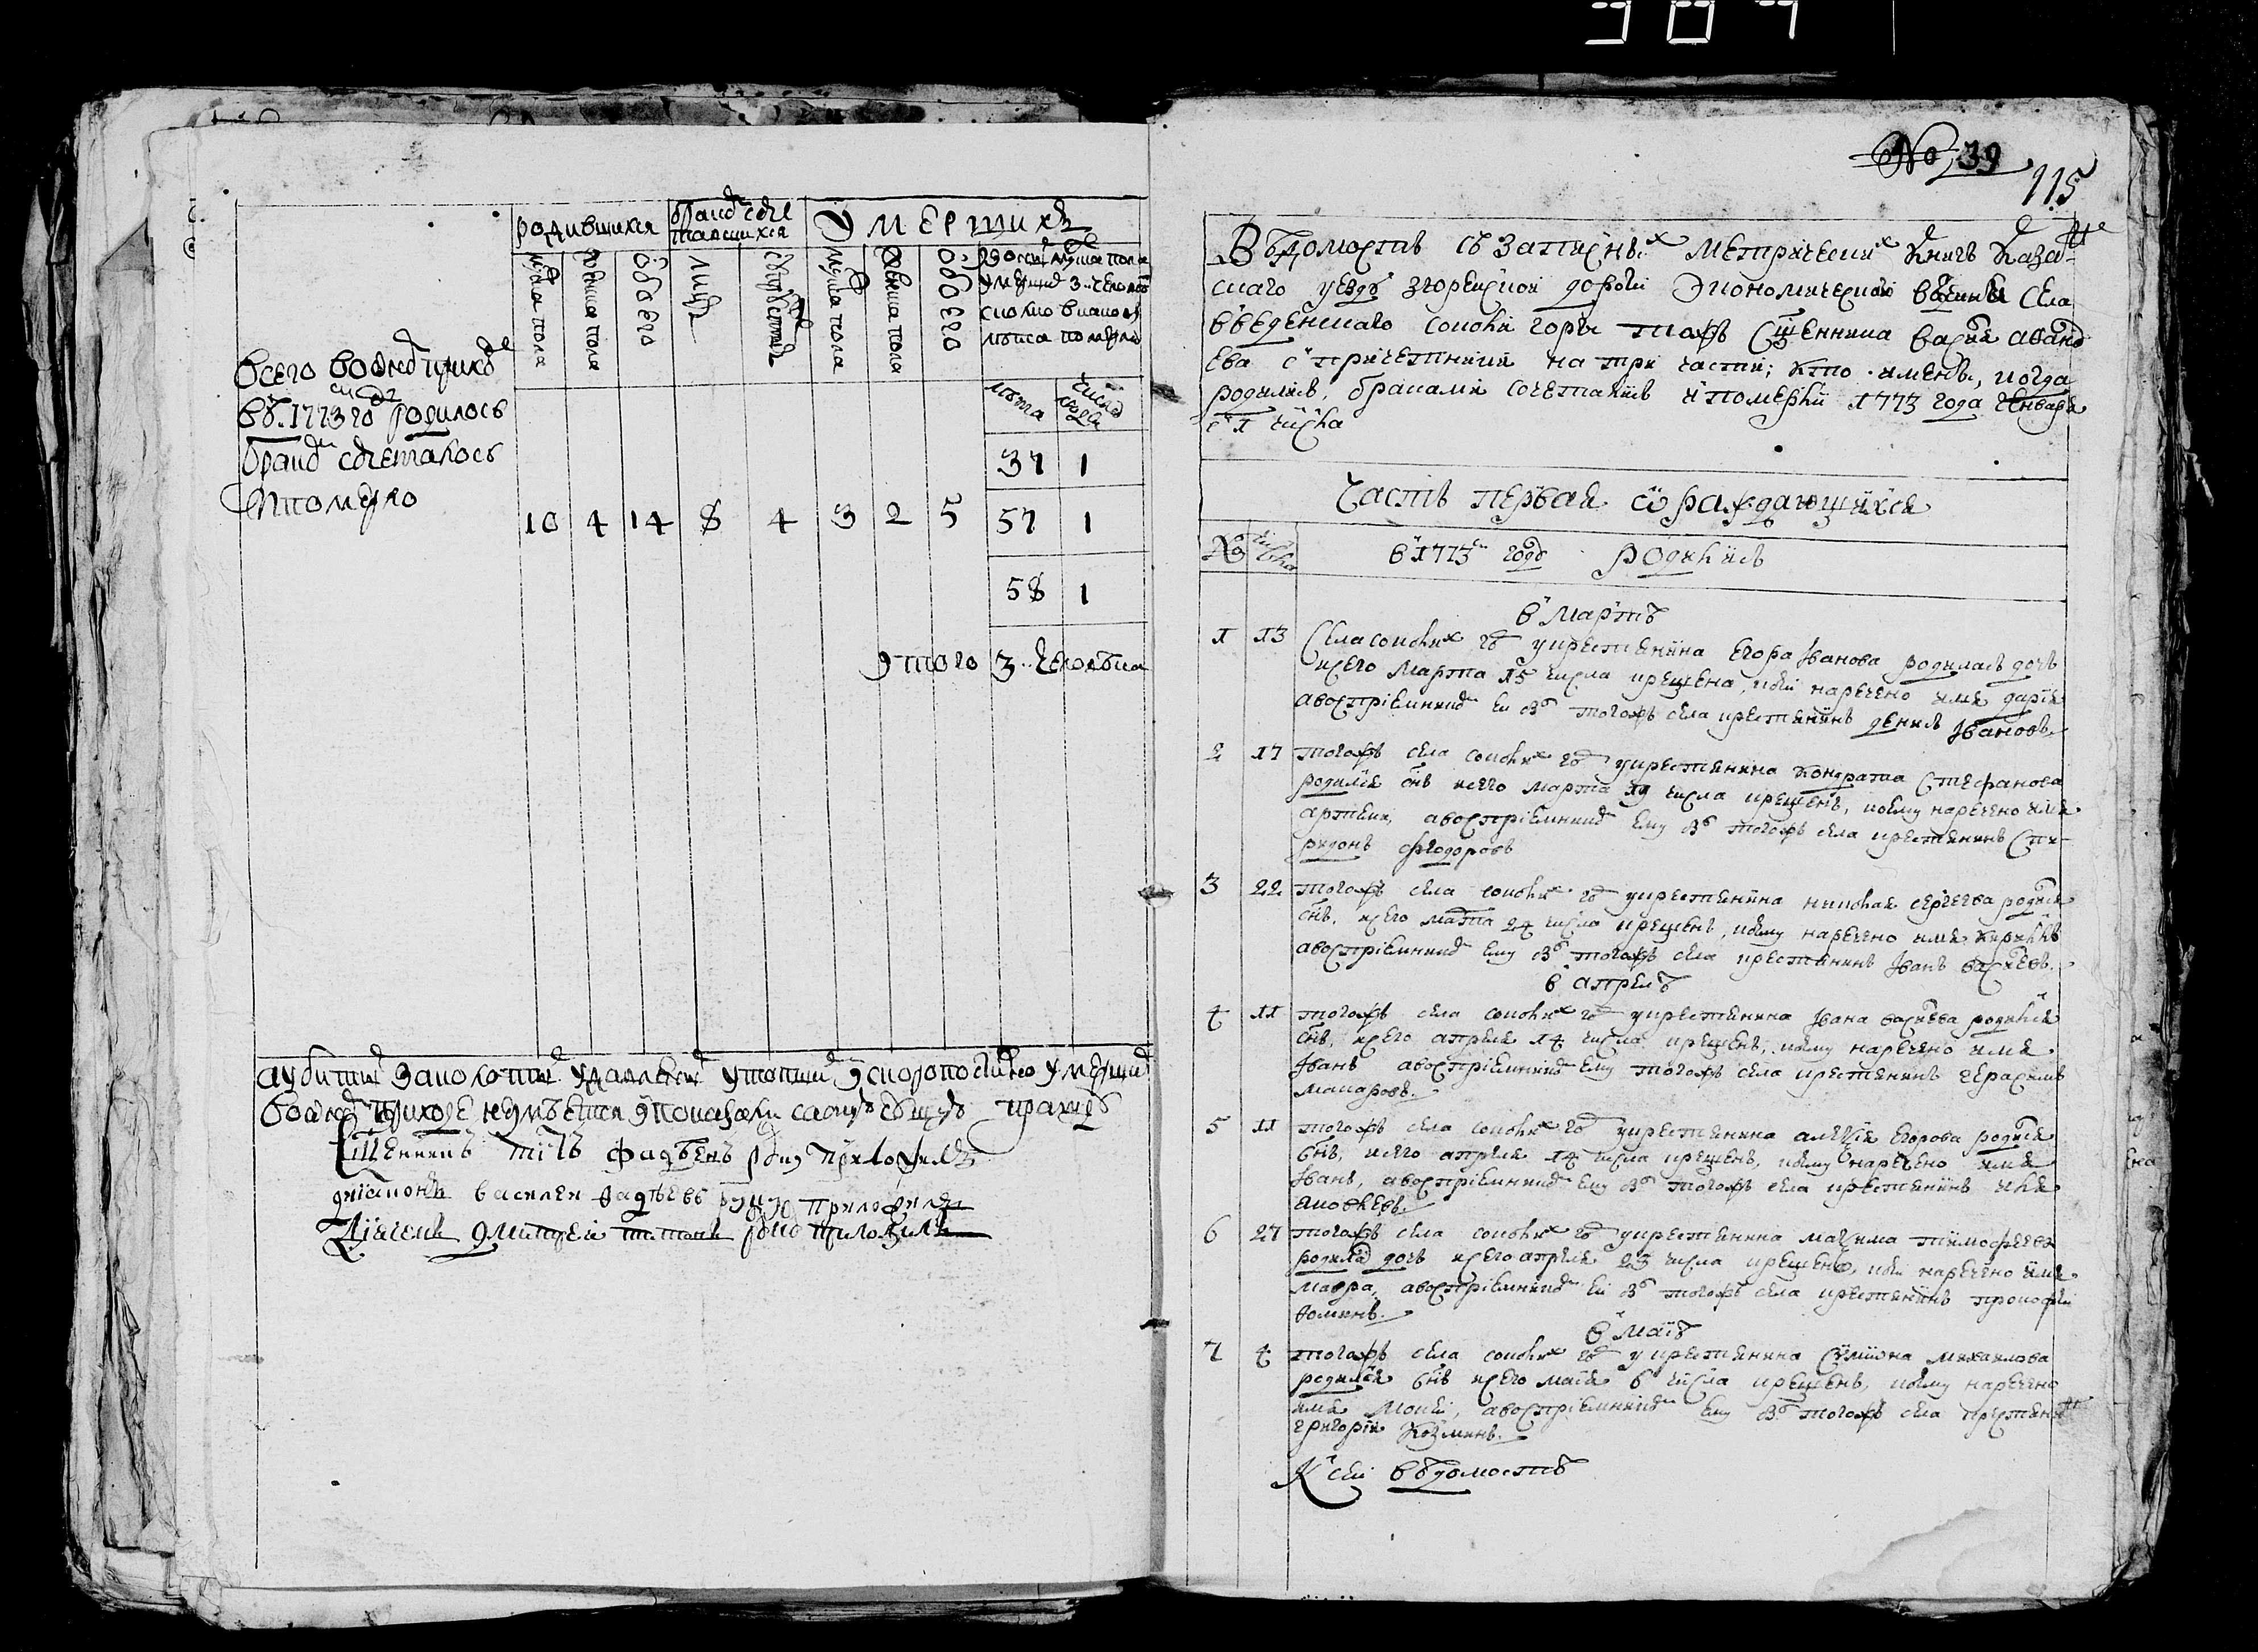 родившихся
браком соче
тавшихся
Умерших
мужска пола
женска полу
обоего
лиц
мужска пола
женска полу
обоего
умерших 3 человек
лета
число людей
Всего во оном приходе
в 1773 го родилось
браком сочеталось
и померло
37 1
10 4 14 8 4 3 2 5 57 1
58 1
итого 3 человека
Священникъ Титъ Фадеевъ руку приложилъ
диаконъ василеи Фадеевъ руку приложилъ
Дьячекъ дмитреи титовъ руку приложилъ
№ 39
115
Вѣдомость съ записныхъ метрическихъ книгъ Казан-
скаго уезду зюрейской дороги Экономической вотчины Села
Введенскаго соколи горы тожъ священника
ева с причетники на три части; кто имены, когда
родились, браками сочетались и померли 1773 года генваря
с 1 числа
Часть первая о раждающихся
№ числа в 1773 годе родились
в Марте
1 13 Села соколихъ горъ у крестьянина Егора Іванова родилась дочь
коего Марта 15 числа крещена, коей наречено имя дарія
а воспріемникомъ ей былъ тогожъ села крестьянинъ денисъ Івановъ
2 17 тогожъ села соколихъ горъ у крестьянина Кондрата Стефанова
родился снъ коего марта 19 числа крещенъ, коему наречено имя
а воспріемникомъ ему былъ тогожъ села крестьянинъ Спи-
ридонъ Феодоровъ
3 22 тогожъ села соколихъ горъ у крестьянина николая сергеева родился
снъ, коего марта 24 числа крещенъ, коему наречено имя Кирилъ
а воспріемникомъ ему былъ тогожъ села крестьянинъ Іванъ васильевъ.
в апреле
4 11 тогожъ села соколихъ горъ у крестьянина Івана васильева родился
снъ, коего апреля 14 числа крещенъ, коему наречено имя
Іванъ а воспріемникомъ ему тогожъ села крестьянинъ герасимъ
макаровъ.
5 11 тогожъ села соколихъ горъ у крестьянина алексія Егорова родился
снъ, коего апреля 14 числа крещенъ, коему наречено имя
Іванъ, а воспріемникомъ ему былъ тогожъ села крестьянинъ илья
яковлевъ.
6 27 тогожъ села соколихъ горъ у крестьянина максима тимофеева
родилась дочь коего апреля числа крещена, коей наречено имя
мавра, а воспріемникомъ ей былъ тогожъ села крестьянинъ прокофей
Фоминъ.
в маіе
7 4 тогожъ села соколихъ горъ у крестьянина Сумиона михаилова
родился снъ коего маія 6 числа крещенъ, коему наречено
имя Мокей, а воспріемникомъ ему былъ тогожъ села крестьянинъ
григорій Козминъ.
К сей ведомосте